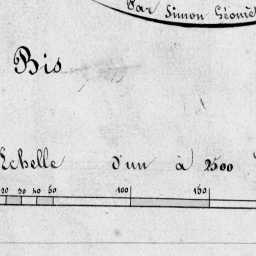 Par Simon Géomèt
Bis
Echelle d'un à 2500
100 150